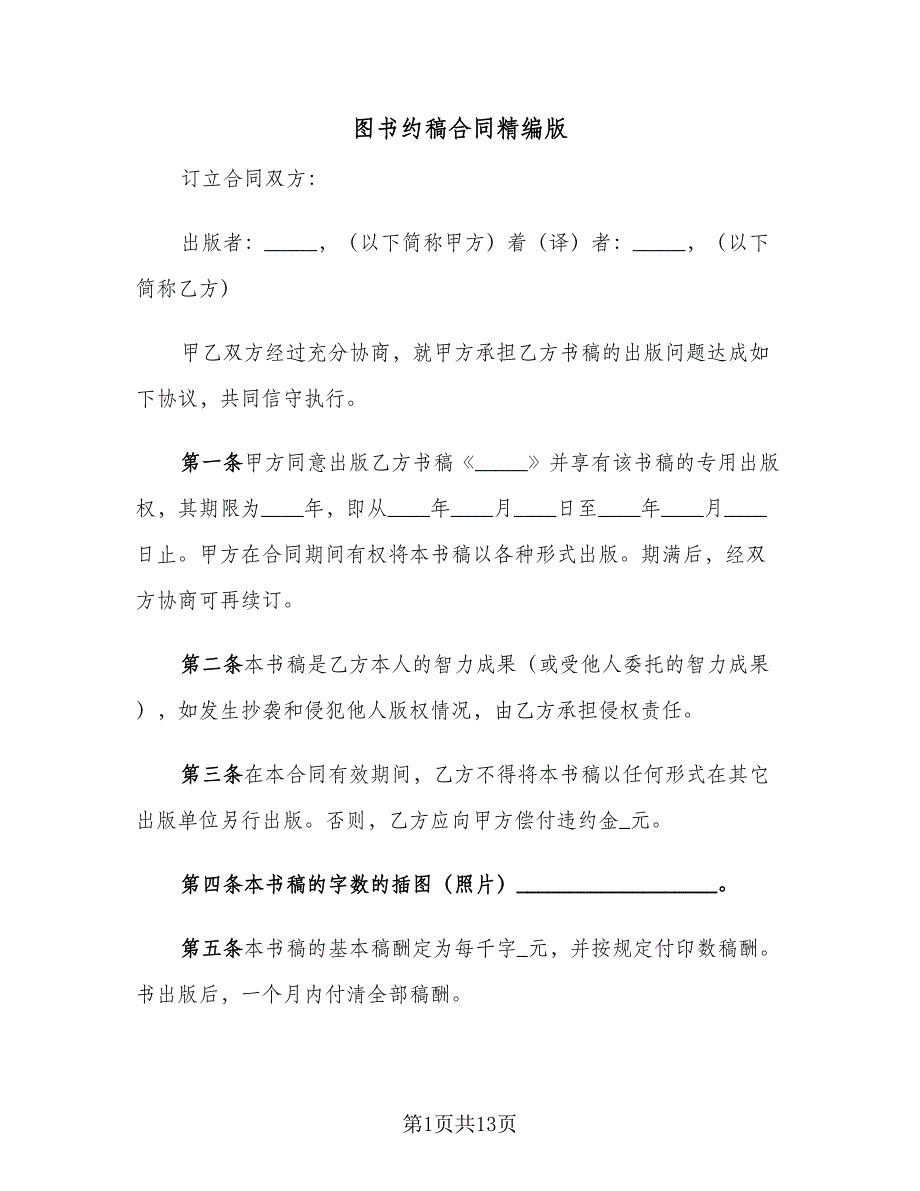 图书约稿合同精编版
订立合同双方：
出版者：_____，（以下简称甲方）着（译）者：_____，（以下
简称乙方）
甲乙双方经过充分协商，就甲方承担乙方书稿的出版问题达成如
下协议，共同信守执行。
第一条甲方同意出版乙方书稿《_____》并享有该书稿的专用出版
权，其期限为____年，即从____年____月____日至____年____月____
日止。甲方在合同期间有权将本书稿以各种形式出版。期满后，经双
方协商可再续订。
第二条本书稿是乙方本人的智力成果（或受他人委托的智力成果
），如发生抄袭和侵犯他人版权情况，由乙方承担侵权责任。
第三条在本合同有效期间，乙方不得将本书稿以任何形式在其它
出版单位另行出版。否则，乙方应向甲方偿付违约金_元。
第四条本书稿的字数的插图（照片）___________________。
第五条本书稿的基本稿酬定为每千字_元，并按规定付印数稿酬。
书出版后，一个月内付清全部稿酬。
第1页共13页